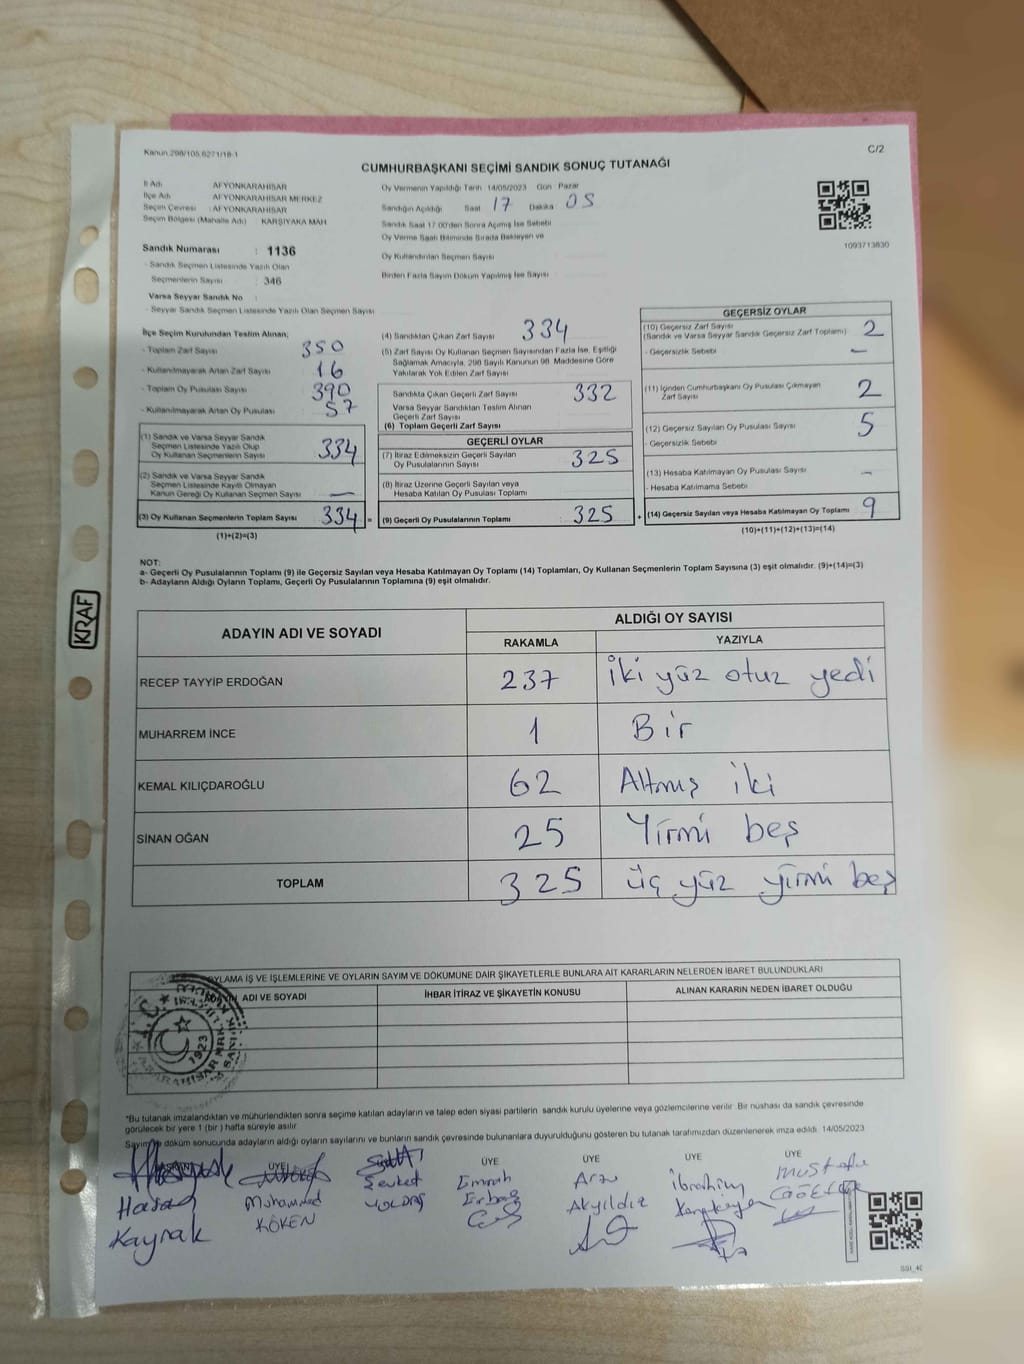 Kanun:298/105,6271/18-1
C/2
CUMHURBAŞKANI SEÇİMİ SANDIK SONUÇ TUTANAĞI
İl Adı : AFYONKARAHİSAR
İlçe Adı : AFYONKARAHİSAR MERKEZ
Seçim Çevresi : AFYONKARAHİSAR
Seçim Bölgesi (Mahalle Adı) : KARŞIYAKA MAH
Sandık Numarası : 1136
- Sandık Seçmen Listesinde Yazılı Olan
Seçmenlerin Sayısı : 346
Varsa Seyyar Sandık No :
- Seyyar Sandık Seçmen Listesinde Yazılı Olan Seçmen Sayısı
Oy Vermenin Yapıldığı Tarih : 14/05/2023 Gün : Pazar
Sandığın Açıldığı Saat 17 Dakika 05
Sandık Saat 17:00'den Sonra Açılmış İse Sebebi
Oy Verme Saati Bitiminde Sırada Bekleyen ve
Oy Kullandırılan Seçmen Sayısı
Birden Fazla Sayım Döküm Yapılmış İse Sayısı
1093713830
İlçe Seçim Kurulundan Teslim Alınan;
- Toplam Zarf Sayısı 350
- Kullanılmayarak Artan Zarf Sayısı 16
- Toplam Oy Pusulası Sayısı 390
- Kullanılmayarak Artan Oy Pusulası 57
(1) Sandık ve Varsa Seyyar Sandık
Seçmen Listesinde Yazılı Olup
Oy Kullanan Seçmenlerin Sayısı 334
(2) Sandık ve Varsa Seyyar Sandık
Seçmen Listesinde Kayıtlı Olmayan
Kanun Gereği Oy Kullanan Seçmen Sayısı —
(3) Oy Kullanan Seçmenlerin Toplam Sayısı 334 =
(1)+(2)=(3)
(4) Sandıktan Çıkan Zarf Sayısı 334
(5) Zarf Sayısı Oy Kullanan Seçmen Sayısından Fazla İse, Eşitliği
Sağlamak Amacıyla, 298 Sayılı Kanunun 98. Maddesine Göre
Yakılarak Yok Edilen Zarf Sayısı
Sandıkta Çıkan Geçerli Zarf Sayısı 332
Varsa Seyyar Sandıktan Teslim Alınan
Geçerli Zarf Sayısı
(6) Toplam Geçerli Zarf Sayısı
GEÇERLİ OYLAR
(7) İtiraz Edilmeksizin Geçerli Sayılan
Oy Pusulalarının Sayısı 325
(8) İtiraz Üzerine Geçerli Sayılan veya
Hesaba Katılan Oy Pusulası Toplamı
(9) Geçerli Oy Pusulalarının Toplamı 325 +
GEÇERSİZ OYLAR
(10) Geçersiz Zarf Sayısı
(Sandık ve Varsa Seyyar Sandık Geçersiz Zarf Toplamı) 2
- Geçersizlik Sebebi —
(11) İçinden Cumhurbaşkanı Oy Pusulası Çıkmayan
Zarf Sayısı 2
(12) Geçersiz Sayılan Oy Pusulası Sayısı 5
- Geçersizlik Sebebi
(13) Hesaba Katılmayan Oy Pusulası Sayısı —
- Hesaba Katılmama Sebebi
(14) Geçersiz Sayılan veya Hesaba Katılmayan Oy Toplamı 9
(10)+(11)+(12)+(13)=(14)
NOT:
a- Geçerli Oy Pusulalarının Toplamı (9) ile Geçersiz Sayılan veya Hesaba Katılmayan Oy Toplamı (14) Toplamları, Oy Kullanan Seçmenlerin Toplam Sayısına (3) eşit olmalıdır. (9)+(14)=(3)
b- Adayların Aldığı Oyların Toplamı, Geçerli Oy Pusulalarının Toplamına (9) eşit olmalıdır.
KRAF
ADAYIN ADI VE SOYADI
ALDIĞI OY SAYISI
RAKAMLA YAZIYLA
RECEP TAYYİP ERDOĞAN 237 iki yüz otuz yedi
MUHARREM İNCE 1 Bir
KEMAL KILIÇDAROĞLU 62 Altmış iki
SİNAN OĞAN 25 Yirmi beş
TOPLAM 325 üç yüz yirmi beş
OYLAMA İŞ VE İŞLEMLERİNE VE OYLARIN SAYIM VE DÖKÜMÜNE DAİR ŞİKAYETLERLE BUNLARA AİT KARARLARIN NELERDEN İBARET BULUNDUKLARI
ADI VE SOYADI
İHBAR İTİRAZ VE ŞİKAYETİN KONUSU
ALINAN KARARIN NEDEN İBARET OLDUĞU
T.C.
1923
*Bu tutanak imzalandıktan ve mühürlendikten sonra seçime katılan adayların ve talep eden siyasi partilerin sandık kurulu üyelerine veya gözlemcilerine verilir. Bir nüshası da sandık çevresinde
görülecek bir yere 1 (bir) hafta süreyle asılır.
Sayım ve döküm sonucunda adayların aldığı oyların sayılarını ve bunların sandık çevresinde bulunanlara duyurulduğunu gösteren bu tutanak tarafımızdan düzenlenerek imza edildi. 14/05/2023
BAŞKAN ÜYE ÜYE ÜYE ÜYE ÜYE
Hasan Muhammed Şevket Emrah Arzu İbrahim Mustafa
Kaynak KÖKEN Erbaş Akyıldız